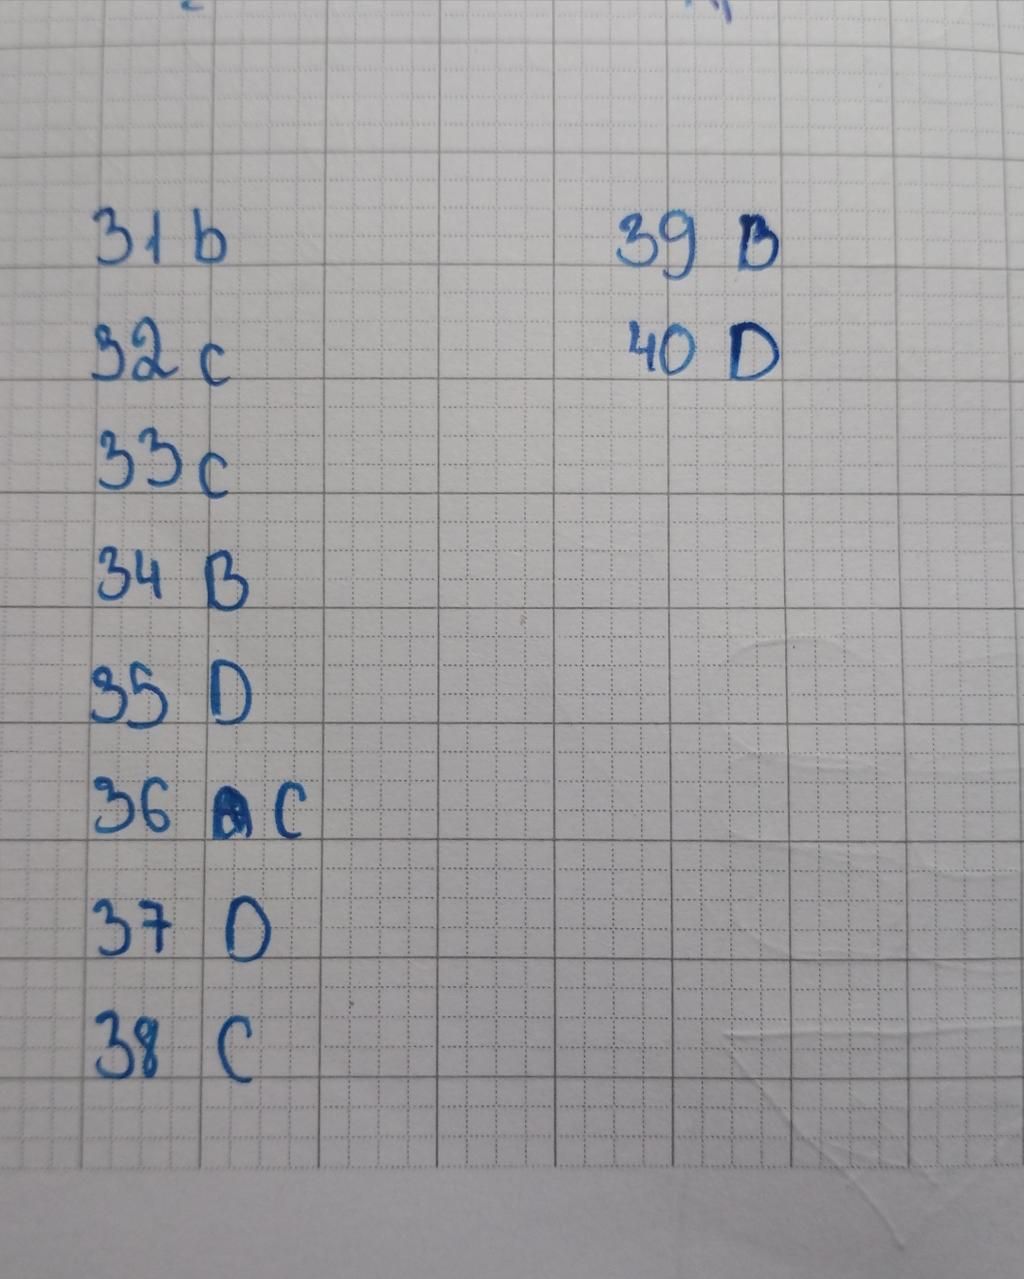 31 b
32 c
33 c
34 B
35 D
36 C
37 D
38 C
39 B
40 D